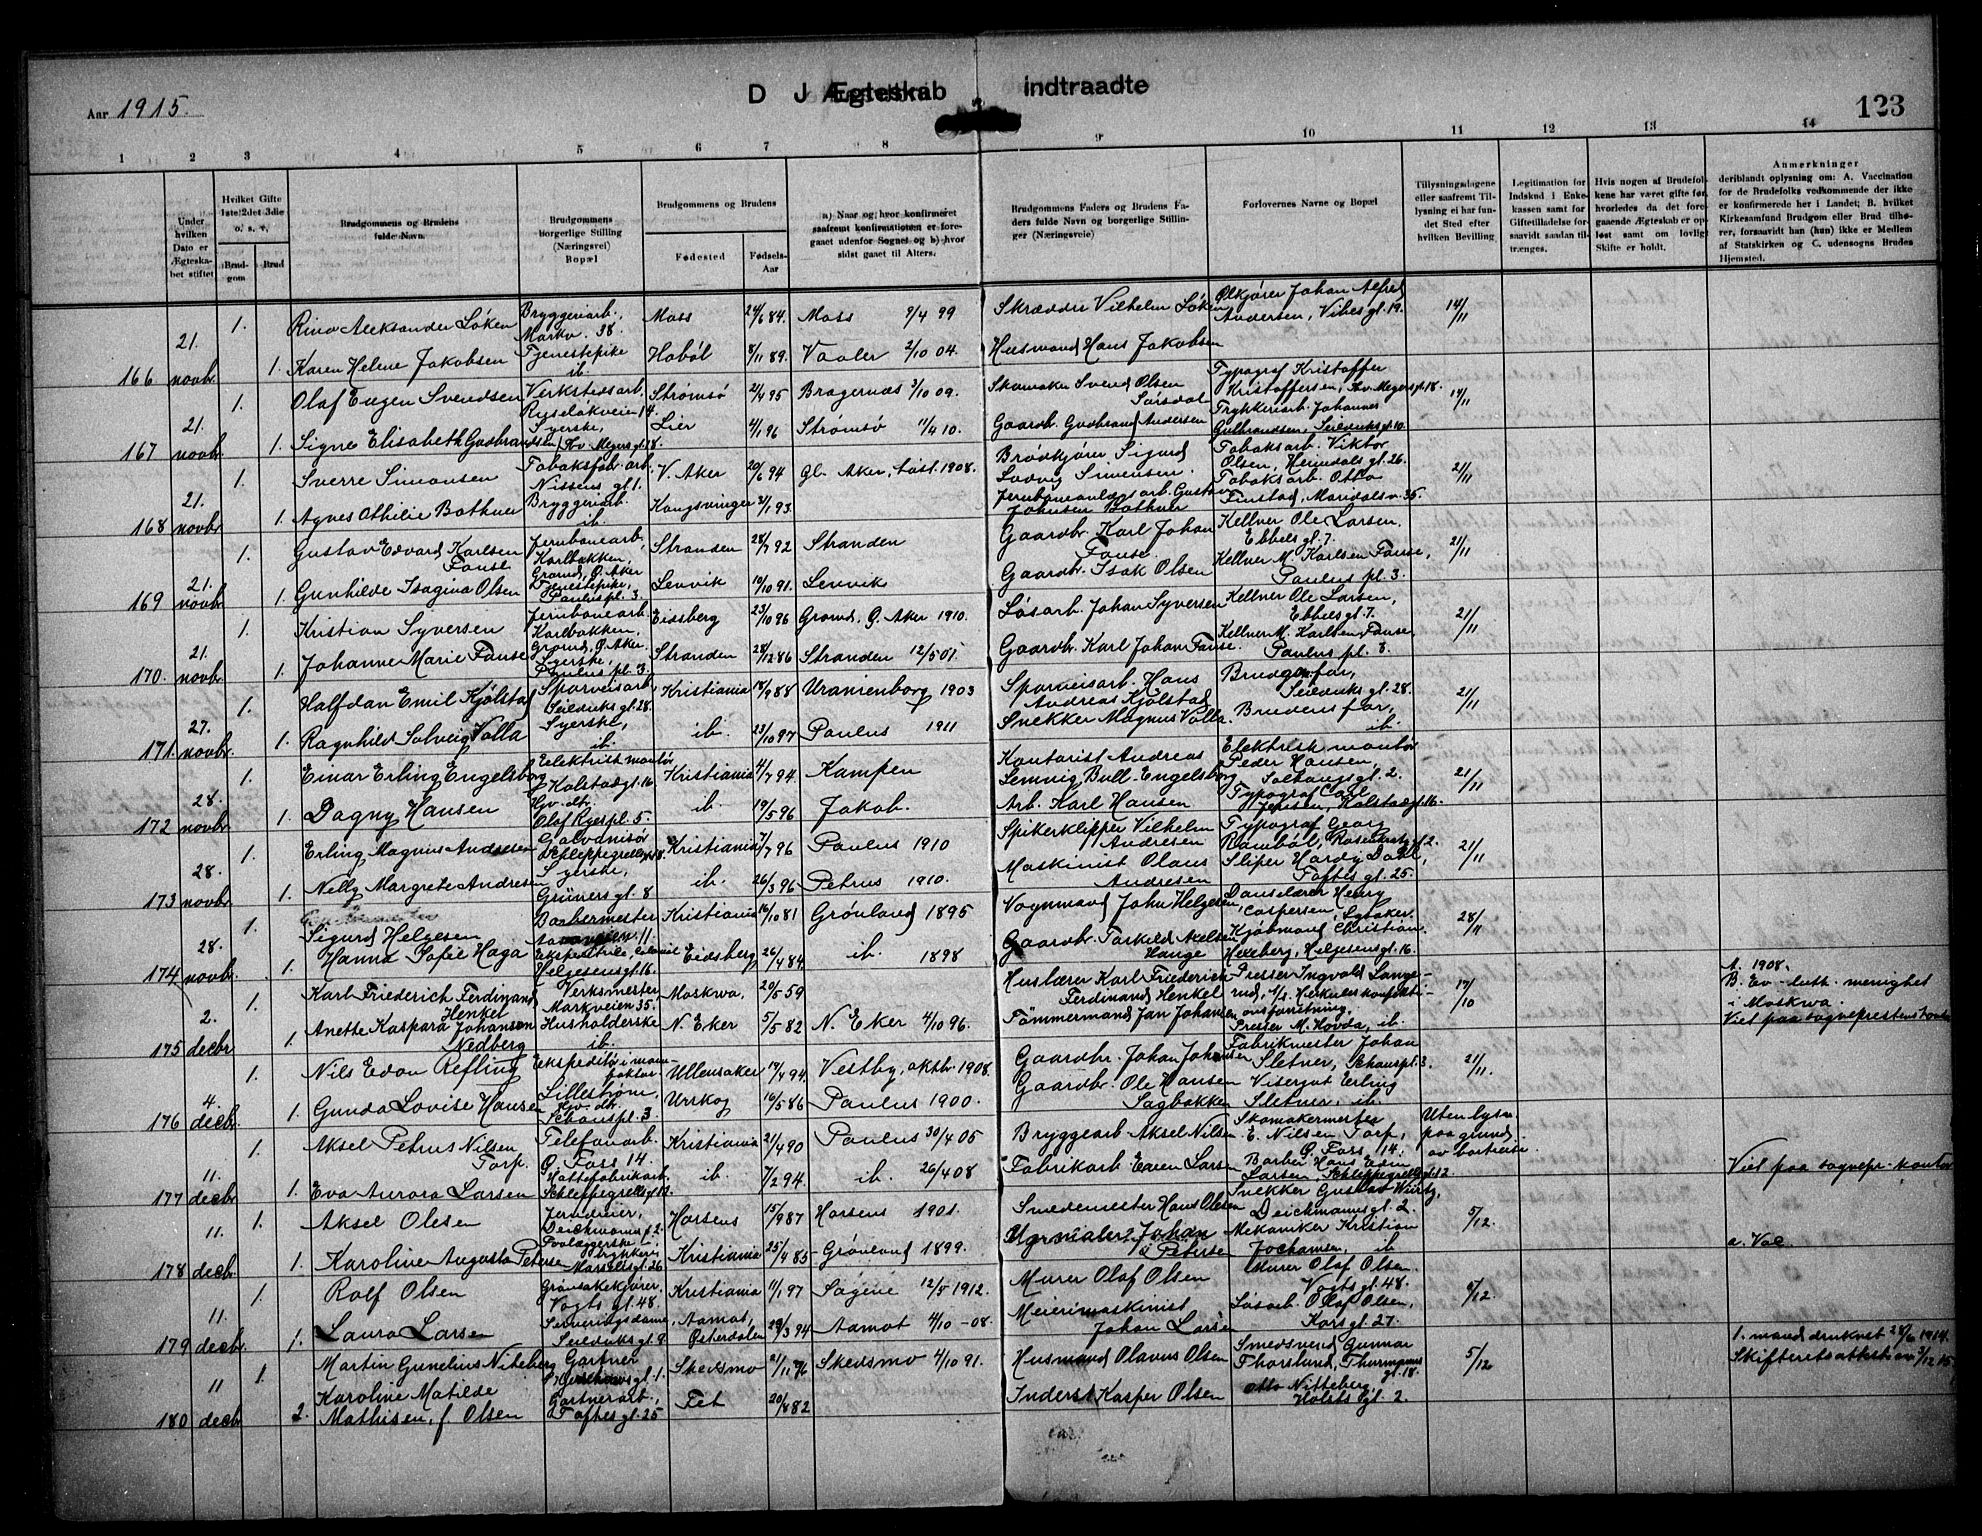 D J Ægteskab indtraadte
Aar 1915.
123
1 2 3 4 5 6 7 8 9 10 11 12 13 14
Under hvilken Dato er Ægteskabet stiftet
Hvilket Gifte 1ste/2det 3die o. s. v.
Brudgom
Brud
Brudgommens og Brudens fulde Navn.
Brudgommens borgerlige Stilling (Næringsvei) Bopæl
Brudgommens og Brudens
Fødested
Fødsels-Aar
a) Naar og hvor konfirmeret saafremt konfirmationen er foregaaet udenfor Sognet og b) hvor sidst gaaet til Alters.
Brudgommens Faders og Brudens Faders fulde Navn og borgerlige Stillinger (Næringsveie)
Forlovernes Navne og Bopæl
Tillysningsdagene eller saafremt Tillysning ei har fundet Sted efter hvilken Bevilling
Legitimation for Indskud i Enkekassen samt for Gifteuilladelse forsaavidt saadan tiltrænges.
Hvis nogen af Brudefolkene har været gifte før, hvorledes da det foregaaende Ægteskab er opløst samt om lovlig Skifte er holdt.
Anmerkninger deriblandt oplysning om: A. Vaccination for de Brudefolks vedkommende der ikke er konfirmerede her i Landet; B. hvilket Kirkesamfund Brudgom eller Brud tilhører, forsaavidt han (hun) ikke er Medlem af Statskirken og C. udensogns Brudes Hjemsted.
166 21. novbr.
1. Aleksander Løken Bryggeriarb., Markv. 38. Moss 24/6 84. Moss 9/4 99 Skrædder Vilhelm Løken Ølkjører Johan Alfred Andersen, Vibes gt. 19. 14/11
1. Karen Helene Jakobsen Tjenestepike ib. Hobøl 8/11 89. Vaaler 2/10 04. Husmand Hans Jakobsen
167 21. novbr.
1. Olaf Eugen Svendsen Verkstedsarb. 14. Strømsø 2/4 95 Bragernæs 3/10 09. Skomaker Svend Olsen Typograf Kristoffer Kristoffersen, Hv. Meyersgt. 18. 14/11
1. Signe Elisabeth Gudbrandsen Syerske, Hv. Meyersgt. 18. Lier 4/1 96 Strømsø 11/4 10. Gaardb. Gudbrand Andersen Trykkeriarb. Johannes Gulbrandsen, Seilduksgt. 10.
168 21. novbr.
1. Sverre Simonsen Tobaksfabr.arb. Nissens gt. 1. V. Aker 20/6 94 Gl. Aker, høst. 1908. Brødkjører Sigurd Ludvig Simensen. Tobaksarb. Viktor Olsen, Heimdals gt. 26. 21/11
1. Agnes Othilie Bothner Bryggeriarb. ib. Kongsvinger 3/1 93. Jernbaneanlægsarb. Gustav Johnsen Bothner Tobaksarb. Otto Finstad, Maridalsv. 35.
169 21. novbr
1. Gustav Edvard Karlsen Fause Jernbanearb., Karlbakken, Grorud, Ø. Aker Stranden 28/7 92 Stranden Gaardb. Karl Johan Fause. Kellner Ole Larsen, Ebbels gt. 7. 21/11
1. Gunhilde Isagina Olsen Tjenestepike, Paulus pl. 3. Lenvik 10/10 91. Lenvik Gaardb. Isak Olsen Kellner M. Karlsen Fause, Paulus pl. 3.
170. 21. novbr.
1. Kristian Syversen Jernbanearb. Karlbakken, Grorud, Ø. Aker. Eidsberg 23/10 96 Grorud, Ø. Aker 1910. Løsarb. Johan Syversen Kellner Ole Larsen, Ebbelsgt. 7. 21/11
1. Johanne Marie Fause Syerske, Paulus pl. 3. Stranden 28/12 86 Stranden 12/5 01. Gaardb. Karl Johan Fause. Kellner M. Karlsen Fause, Paulus pl. 3.
171. 27. novbr.
1. Halfdan Emil Kjølstad Sporveisarb. Seilduks gt. 28. Kristiania 18/9 88 Uranienborg 1903 Sporveisarb. Hans Andreas Kjølstad Brudgs. far, Seilduks gt. 28. 21/11
1. Ragnhild Solveig Volla Syerske, ib. ib. 23/10 97 Paulus 1911 Snekker Magnus Volla. Brudens far, ib.
172 28. novbr.
1. Einar Erling Engelsborg Elektrisk montør Kolstadgt. 16 Kristiania 4/7 94. Kampen Kontorist Andreas Bull-Engelsborg Elektrisk montør Peder Hansen, gt. 2. 21/11
1. Dagny Hansen Hjv. dtr. Olaf Ryes pl. 5. ib. 19/5 96 Jakob. Arb. Karl Hansen Typograf Carl Jensen, Kolstadgt. 16.
173 28. novbr.
1. Erling Magnus Andresen Galvanisør Schleppegrellsgt. 8. Kristiania 7/7 96 Paulus 1910 Spikerklipper Vilhelm Andresen Typograf Georg Rambøl, Rosenkrantzgt. 2. 21/11
1. Nelly Margrete Andresen Syerske, Grüners gt. 8 ib. 26/3 96 Petrus 1910. Maskinist Olaus Andresen Sliper Hardy Dahl, Toftes gt. 25.
174 28. novbr.
1. Sigurd Helgesen Barbermester 11. Kristiania 16/10 81 Grønland 1895 Vognmand John Helgesen Danselærer Henry Caspersen, 28/11
1. Hanna Sofie Haga Ekspeditrice, Helgesens gt. 16. Eidsberg 26/4 84. ib. 1898 Gaardb. Torkild Axelsen Hauge Kjøbmand Christian Hexeberg, Helgesens gt. 16.
175 2. decbr
1. Karl Friederich Ferdinand Henkel Verksmester Markveien 35. Moskwa, 20/5 59 Huslærer Karl Friederich Ferdinand Henkel Presser Ingvald Langerud, A/s. Herkules konfektionsforretning, 17/10 A. 1908. B. Ev-luth. menighet i Moskwa.
1. Anette Kaspara Johansen Nedberg Husholderske ib. N. Eker 5/5 82 N. Eker 4/10 96. Tømmermand Jan Johansen Presser M. Kovda, ib. Viet paa sogneprestens kontor
176 4. decbr.
1. Nils Edon Refling Ekspeditør i Lillestrøm, Ullensaker 17/4 94. Vestby, oktbr. 1908. Gaardbr. Johan Johansen Fabrikmester Johan Sletner, Schouspl. 3. 21/11.
1. Gunda Lovise Hansen Hjv. dtr. Schouspl. 3 Urskog 16/5 86 Paulus 1900. Gaardbr. Ole Hansen Sagbakken Visergut Erling Sletner, ib.
177 11. decbr
1. Aksel Petrus Nilsen Torp. Telefonarb. Ø. Foss 14. Kristiania 21/4 90 Paulus 30/4 05 Bryggearb Aksel Nilsen Skomakermester E. Nilsen Torp, Ø. Foss 14. Uten lysn. paa grund av bortreise.
1. Eva Aurora Larsen Hattefabrikarb. Schleppegrellsgt. 12. ib. 7/2 94. ib. 26/4 08 Fabrikarb. Even Larsen Barber Hans Edin Larsen, Schleppegrellsgt. 12 Viet paa sognepr. kontor
178 11. decbr.
1. Aksel Olsen Jerndreier, Deichmans gt. 2. Horsens 15/9 87 Horsens 1901. Smedemester Hans Olsen Snekker Gustav Würtz, Deichmanns gt. 2. 5/12.
1. Karoline Augusta Petersen Paalæggerske i trykkeri Marselis gt. 26 Kristiania 25/4 85 Grønland 1899. Johan Petersen Mekaniker Kristian Jochumsen, ib a. Vac.
179 11. decbr.
1. Rolf Olsen Grønsakskjører. Vogts gt. 48. Kristiania 11/1 97 Sagene 12/5 1912. Murer Olaf Olsen Murer Olaf Olsen. Vogts gt. 48. 5/12.
1. Laura Larsen Serveringsdame, Seilduks gt. 9 Aamot, Østerdalen 29/3 94 Aamot 4/10 -08. Meierimaskinist Johan Larsen Løsarb. Olaf Olsen, Korsgt. 27.
180 11 decbr
1. Martin Gunelius Nitteberg Gartner gt. 1. Skedsmo 2/11 76 Skedsmo 4/10 91. Husmand Olavus Olsen Smedsvend Gunnar Thorslund, Thurmanns gt. 18. 5/12 1. mand druknet 28/6 1914. Skifteretsattest av 3/12 15.
2. Karoline Matilde Mathisen, f. Olsen Gartnerarb., Toftes gt. 25 Fet 20/8 82 Inderst Kasper Olsen Otto Nitteberg, Holsts gt. 2.